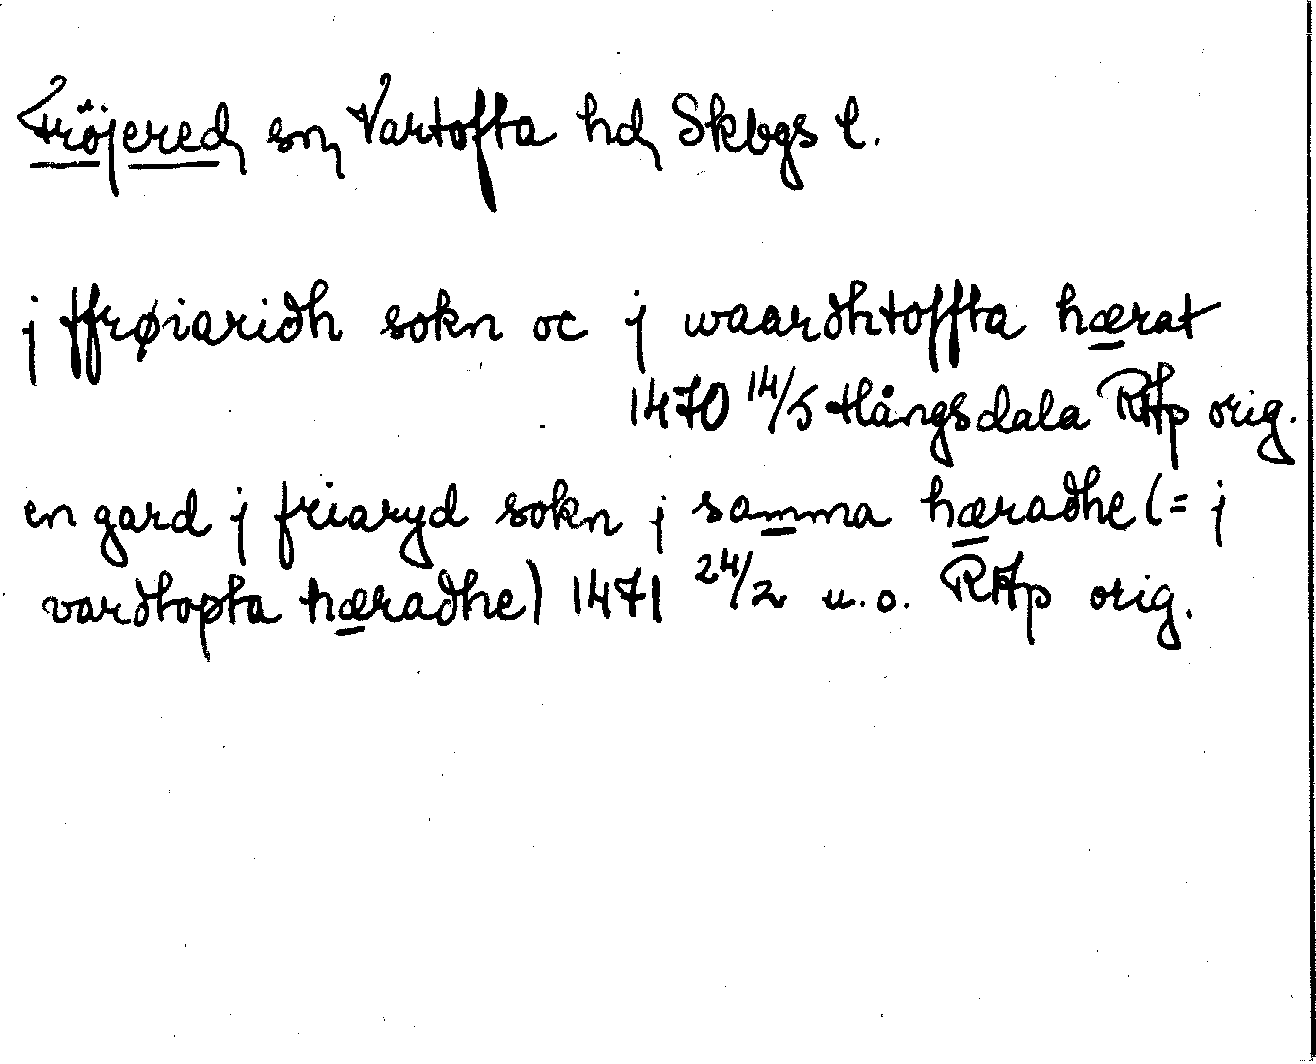 Fröjered sn, Vartofta hd, Skbgs l.
j ffrøiaridh sokn oc j waardhtoffta hærat
1470 14/5 Hångsdala RAp orig.
en gard j friaryd sokn j samma hæradhe (= j
vardhopta hæradhe) 1471 24/2 u.o. RAp orig.